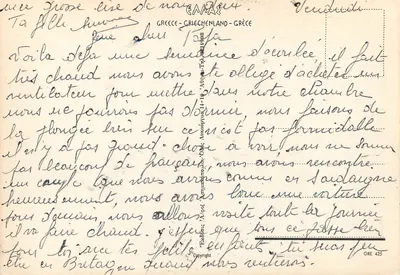 une grosse bise de nous deux. Vendredi
Ta fille
GREECE - GRIECHENLAND - GRÈCE
Mon cher Papa
Voilà déjà une semaine d'écoulée il fait
très chaud nous avons été obligé d'acheter un
ventilateur pour mettre dans notre chambre
nous ne pouvions pas dormir, nous faisons de
la plongée bien que ce n'est pas formidable
il n'y a pas grand chose à voir, nous ne sommes
pas beaucoup de français, nous avons rencontré
un couple que nous avions connu en Sardaigne
heureusement, nous avons loué une voiture
pour demain, nous allons visité toute la journée
il va faire chaud. J'espère que tous ce passe bien
pour toi avec tes petits enfants, tu seras peut
être en Bretagne quand nous rentrerons.
Copyright
ΩΚΕ 425